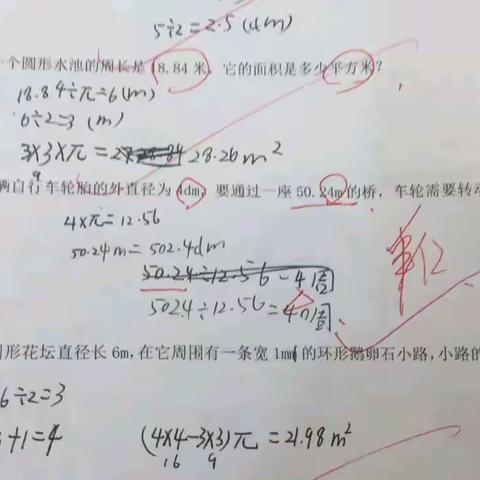 5÷2=2.5(dm)
个圆形水池的周长是18.84米，它的面积是多少平方米？
18.84÷π=6(m)
6÷2=3 (m)
3×3×π=28.26m²
9
辆自行车轮胎的外直径为4dm，要通过一座50.24m的桥，车轮需要转动
4×π=12.56
50.24m=502.4dm
单位
50.24÷12.56=4周
5024÷12.56=40周
形花坛直径长6m，在它周围有一条宽1m的环形鹅卵石小路，小路的
6÷2=3
+1=4
(4×4-3×3)π=21.98m²
16 9